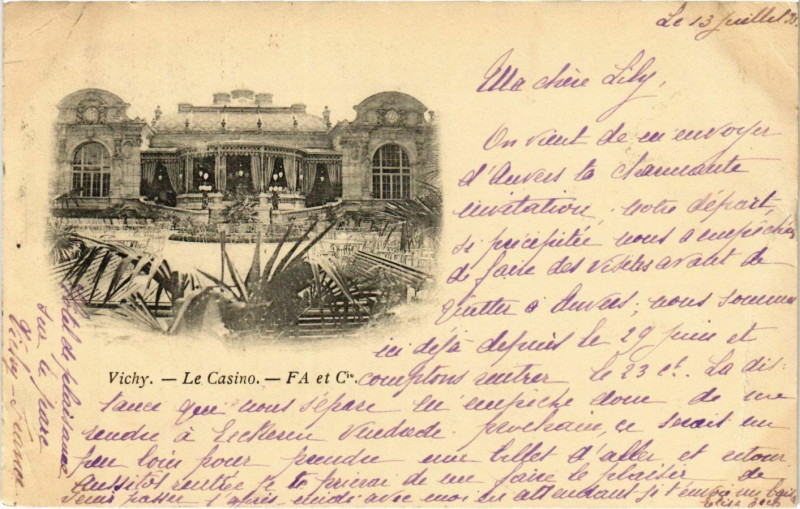 Le 13 juillet
Ma chère Lily,
On vient de m'envoyer
d'Anvers ta charmante
invitation, notre départ
si précipitée nous a empêchés
de faire des visites avant de
quitter à Anvers; nous sommes
ici déjà depuis le 29 juin et
comptons rentrer le 23 ct. La dis-
tance qui nous sépare m'empêche donc de me
rendre à Eeckeren Vendredi prochain, ce serait un
peu loin pour prendre un billet d'aller et retour
Aussitôt rentrée je te prierai de me faire le plaisir de
venir passer l'après midi avec moi en attendant je t'envoie un bon
Vichy. — Le Casino. — FA et Cie.
Hôtel de plaisance
sur le parc
Vichy France